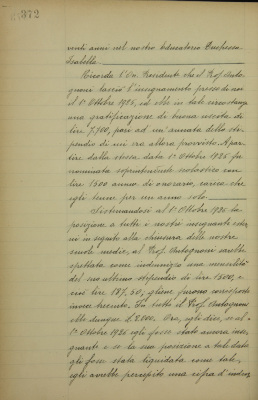 372
venti anni nel nostro Educatorio Duchessa
Isabella.
Ricorda l'On. Presidente che il Prof. Auto-
gnani lasciò l'insegnamento presso di noi
il 1° Ottobre 1925, ed ebbe in tale circostanza
una gratificazione di buona uscita di
lire 7.700, pari ad un'annata dello sti-
pendio di cui era allora provvisto. A par-
tire dalla stessa data 1° Ottobre 1925 fu
nominato soprintendente scolastico con
lire 1500 annue di onorario, carica che
egli tenne per un anno solo.
Sistemandosi al 1° Ottobre 1926 la
posizione a tutti i nostri insegnanti ester-
ni in seguito alla chiusura delle nostre
scuole medie, al Prof. Autognani sarebbe
spettata come indennizzo una mensilità
del suo ultimo stipendio di lire 1500, e
cioè lire 187,50; gliene furono corrisposte
invece trecento. In tutto il Prof. Autognani
ebbe dunque L. 8.000. Ora, egli dice, se al
1° Ottobre 1926 egli fosse stato ancora inse-
gnante e se la sua posizione a tale data
gli fosse stata liquidata come tale,
egli avrebbe percepito una cifra d'inden